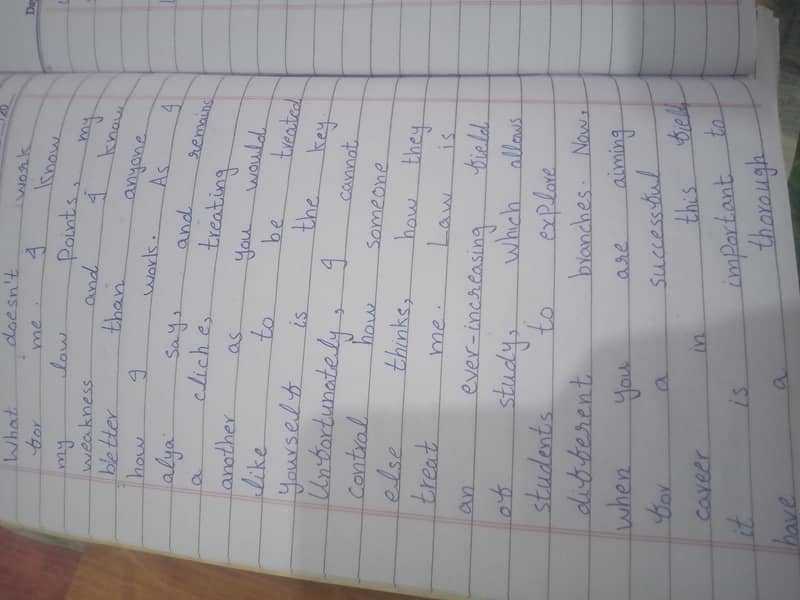 What doesn't work
for me. I know
my low points, my
weakness and I know
better than anyone
how I work. As I
alya say, and remains
a cliche, treating
another as you would
like to be treated
yourself is the key.
Unfortunately, I cannot
control how someone
else thinks, how they
treat me. Law is
an ever-increasing field
of study, which allows
students to explore
different branches. Now,
when you are aiming
for a successful
career in this field,
it is important to
have a thorough